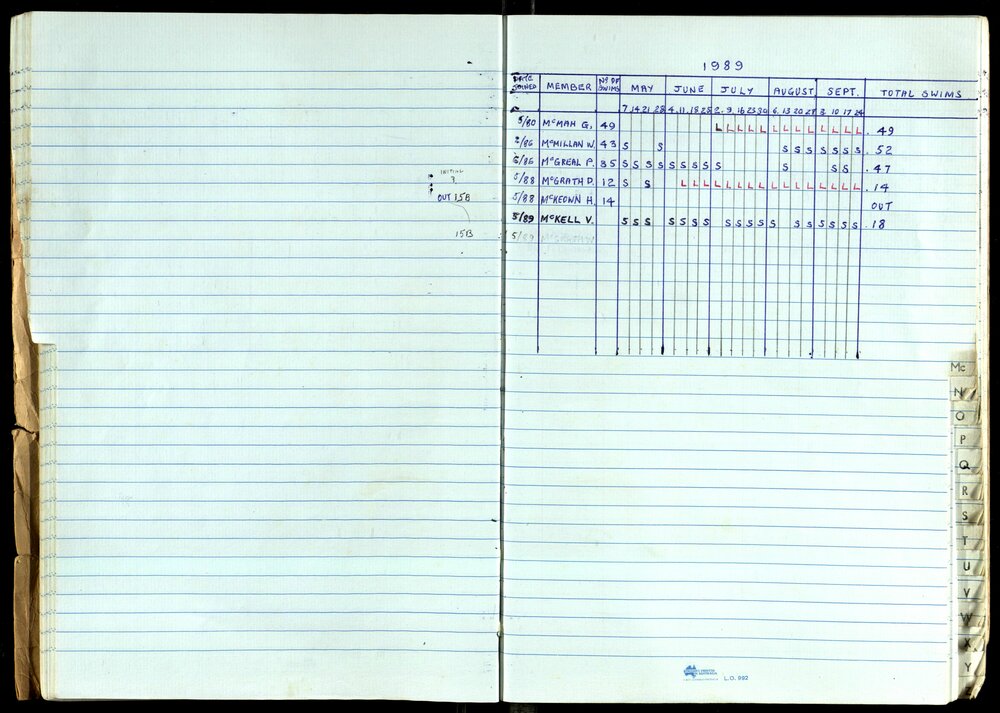 INITIAL
3
OUT 15B
15B
1989
DATE JOINED MEMBER Nº OF SWIMS MAY JUNE JULY AUGUST SEPT. TOTAL SWIMS
7 14 21 28 4 11 18 25 2 9 16 23 30 6 13 20 27 3 10 17 24
5/80 McMAH G. 49 L L L L L L L L L L L L L 49
2/86 McMILLAN W. 43 S S S S S S S S S 52
5/86 McGREAL P. 35 S S S S S S S S S S S S 47
5/88 McGRATH D. 12 S S L L L L L L L L L L L L L L L L 14
5/88 McKEOWN H. 14 OUT
5/89 McKELL V. S S S S S S S S S S S S S S S S S S 18
5/89
Mc
N
O
P
Q
R
S
T
U
V
W
X
Y
Z
L.O. 992